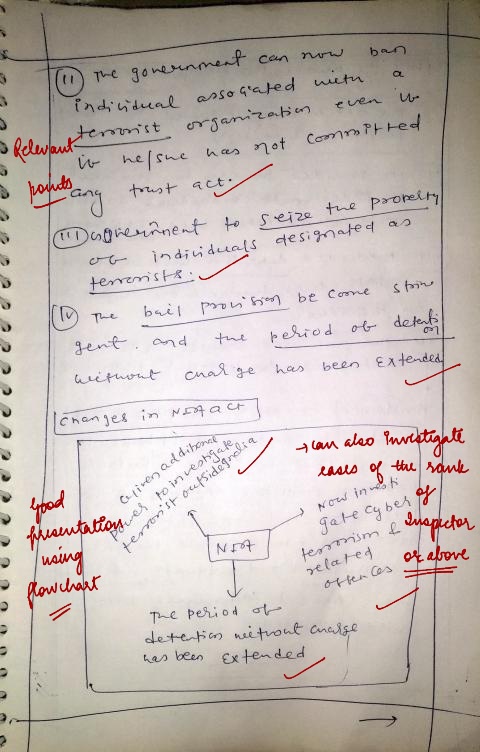 (II) The government can now ban
individual associated with a
terrorist organization even if
he/she has not committed
any trust act.
Relevant
points
(III) Government to seize the property
of individuals designated as
terrorists.
(IV) The bail provision be come strin
gent. and the period of detenti
on
without charge has been Extended
Changes in NIA act
Given additional
power to investigate
terrorist outside India
→ can also investigate
cases of the rank
of
Inspector
or above
Now investi
gate cyber
terrorism &
related
offences
NIA
Good
presentation
using
flowchart
The period of
detention without charge
has been Extended